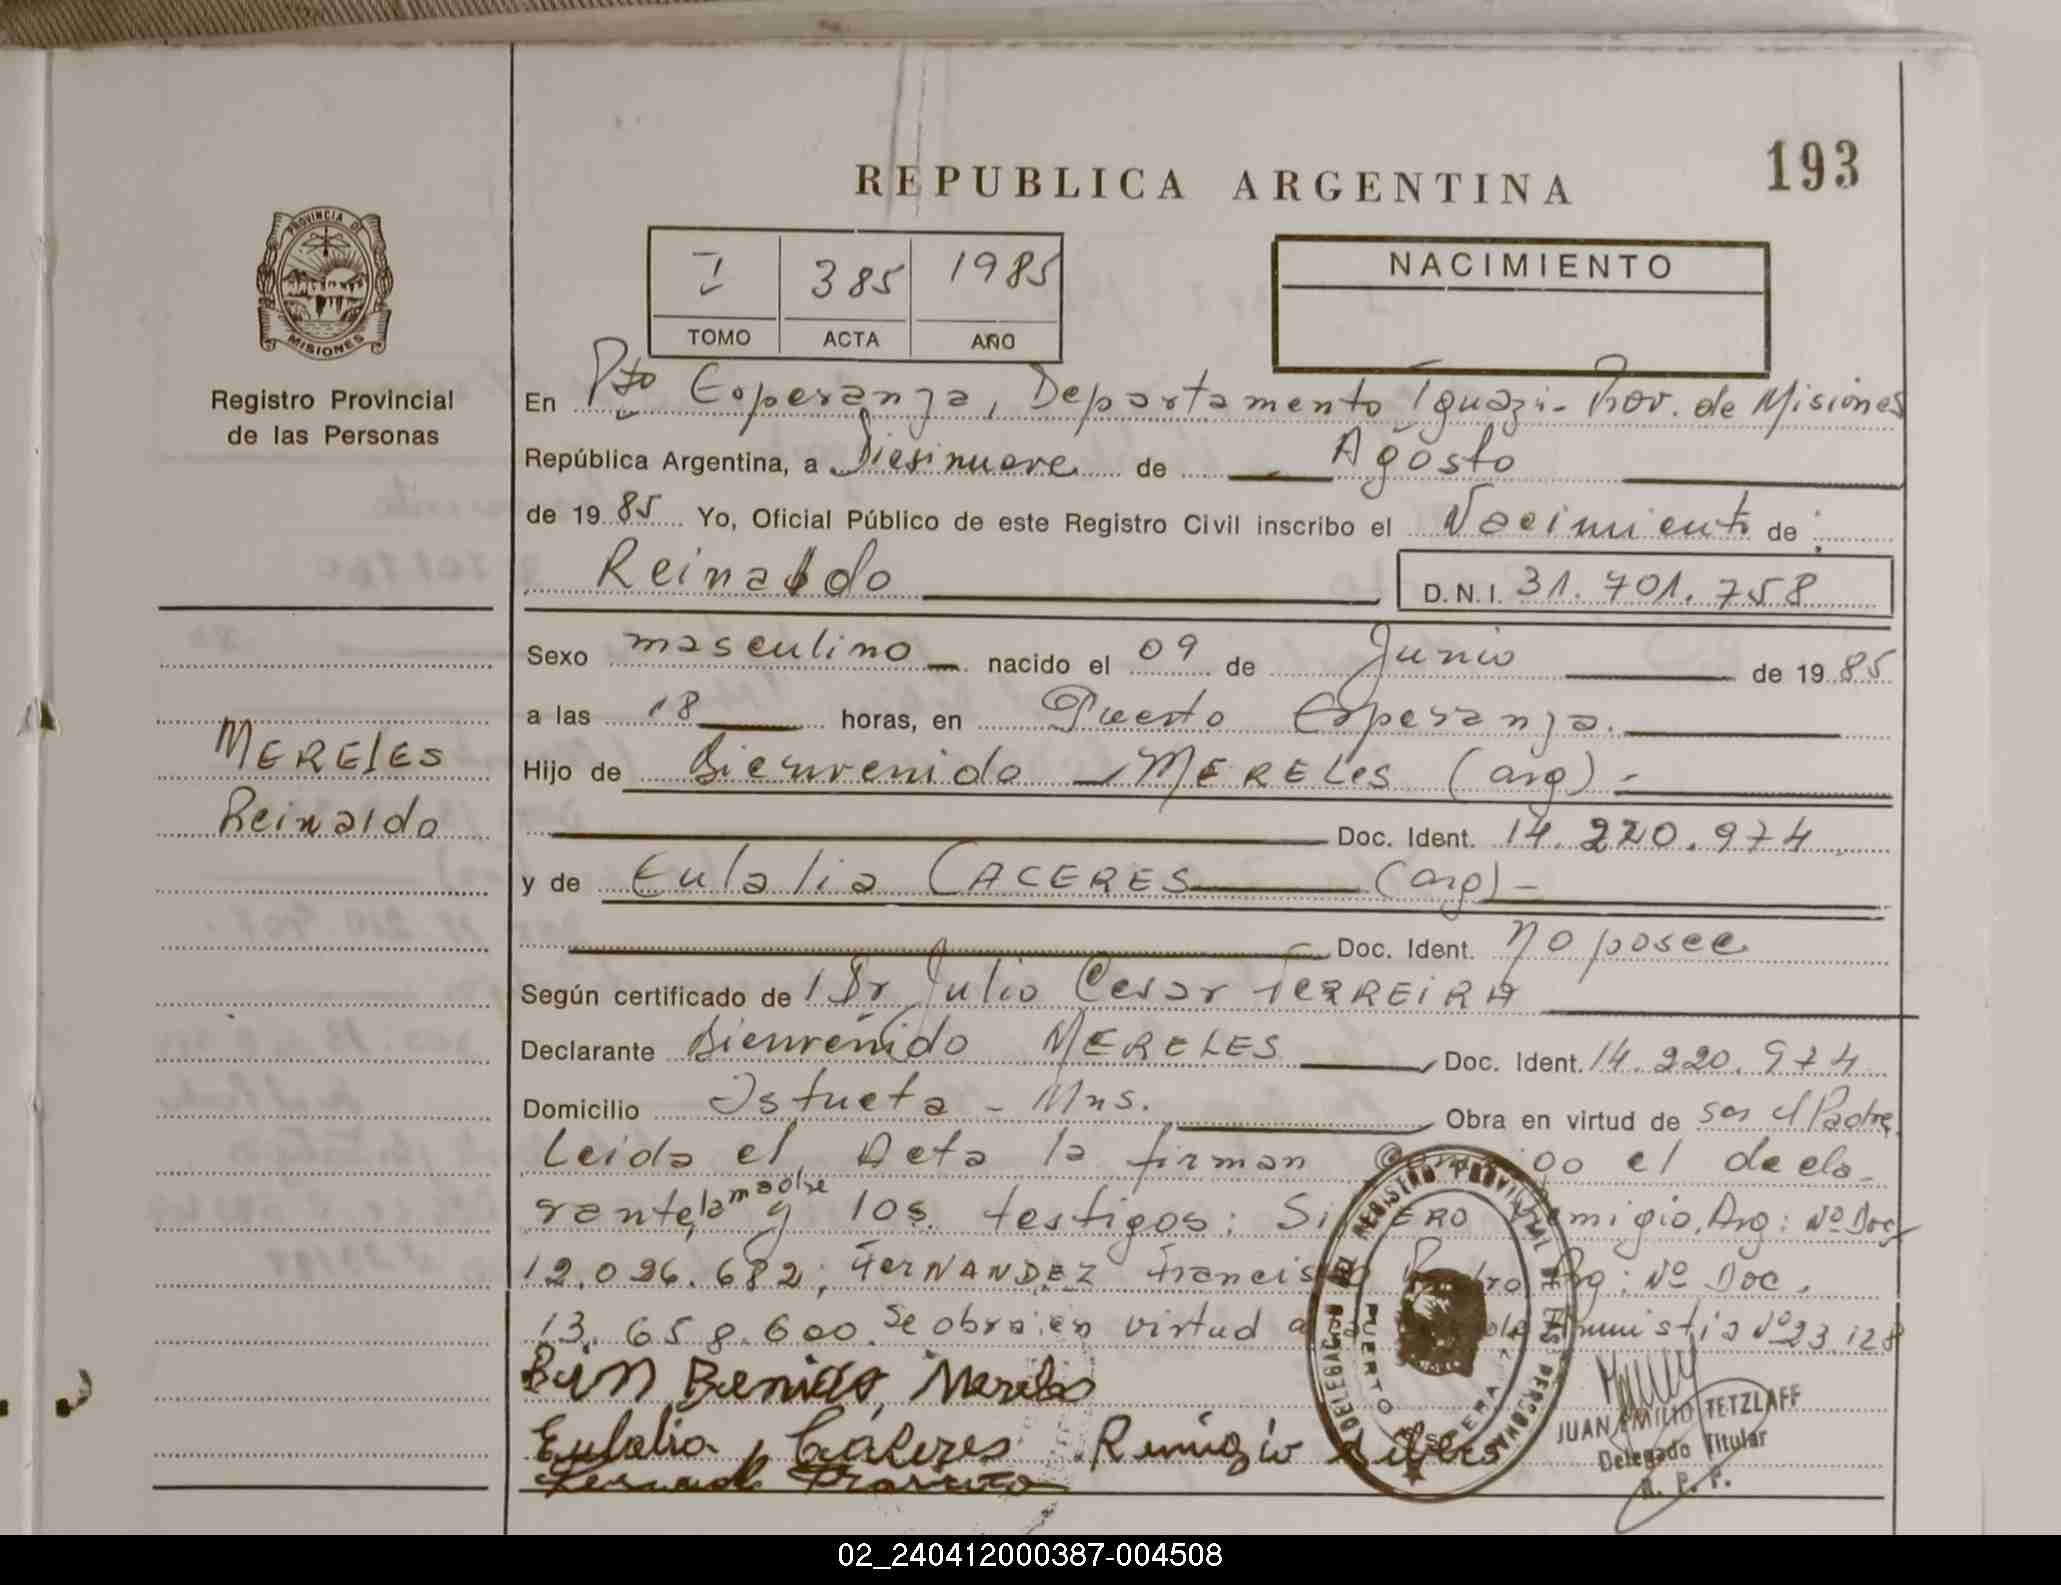 REPUBLICA ARGENTINA
193
PROVINCIA DE
MISIONES
Registro Provincial
de las Personas
I 385 1985
TOMO ACTA AÑO
NACIMIENTO
En Pto Esperanza, Departamento Iguazú - Prov. de Misiones
República Argentina, a Diesinueve de Agosto
de 1985 Yo, Oficial Público de este Registro Civil inscribo el Nacimiento de:
Reinaldo D.N.I. 31.701.758
Sexo masculino nacido el 09 de Junio de 1985
a las 18 horas, en Puerto Esperanza.
MERELES
Hijo de Bienvenido MERELES (arg) -
Reinaldo
Doc. Ident. 14.220.974
y de Eulalia CACERES (arg) -
Doc. Ident. No posee
Según certificado del Dr Julio Cesar FERREIRA
Declarante Bienvenido MERELES Doc. Ident. 14.220.974
Domicilio Istueta - Mns. Obra en virtud de ser el Padre
Leida el Acta la firman el decla-
rante, la madre y los testigos: Remigio, Arg: Nº Doc
12.026.682; FERNANDEZ Francisco Arg: Nº Doc.
13.658.600. Se obra en virtud Amnistia Nº 23128
Mereles
Eulalia Cáceres Remigio
DELEGACION DEL REGISTRO PROVINCIAL DE LAS PERSONAS
PUERTO
JUAN EMILIO TETZLAFF
Delegado Titular
R. P. P.
02_240412000387-004508